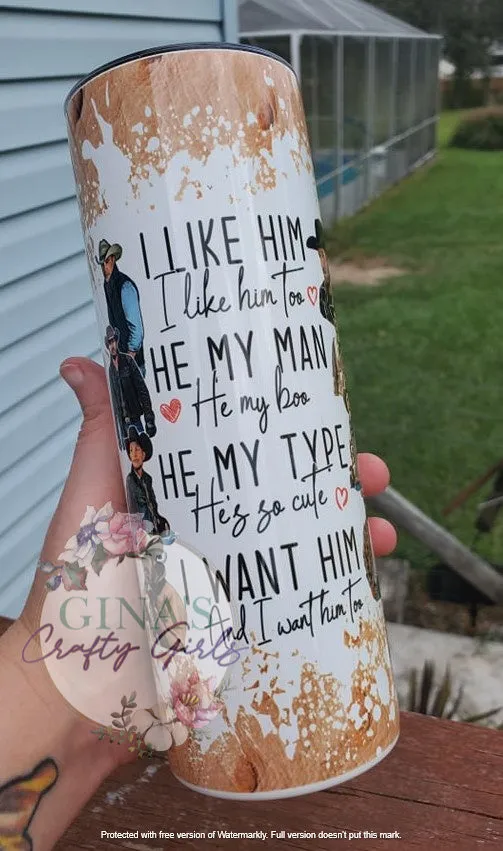 I LIKE HIM
I like him too
HE MY MAN
He my boo
HE MY TYPE
He's so cute
I WANT HIM
And I want him too
GINA'S
Crafty Girls
Protected with free version of Watermarkly. Full version doesn't put this mark.